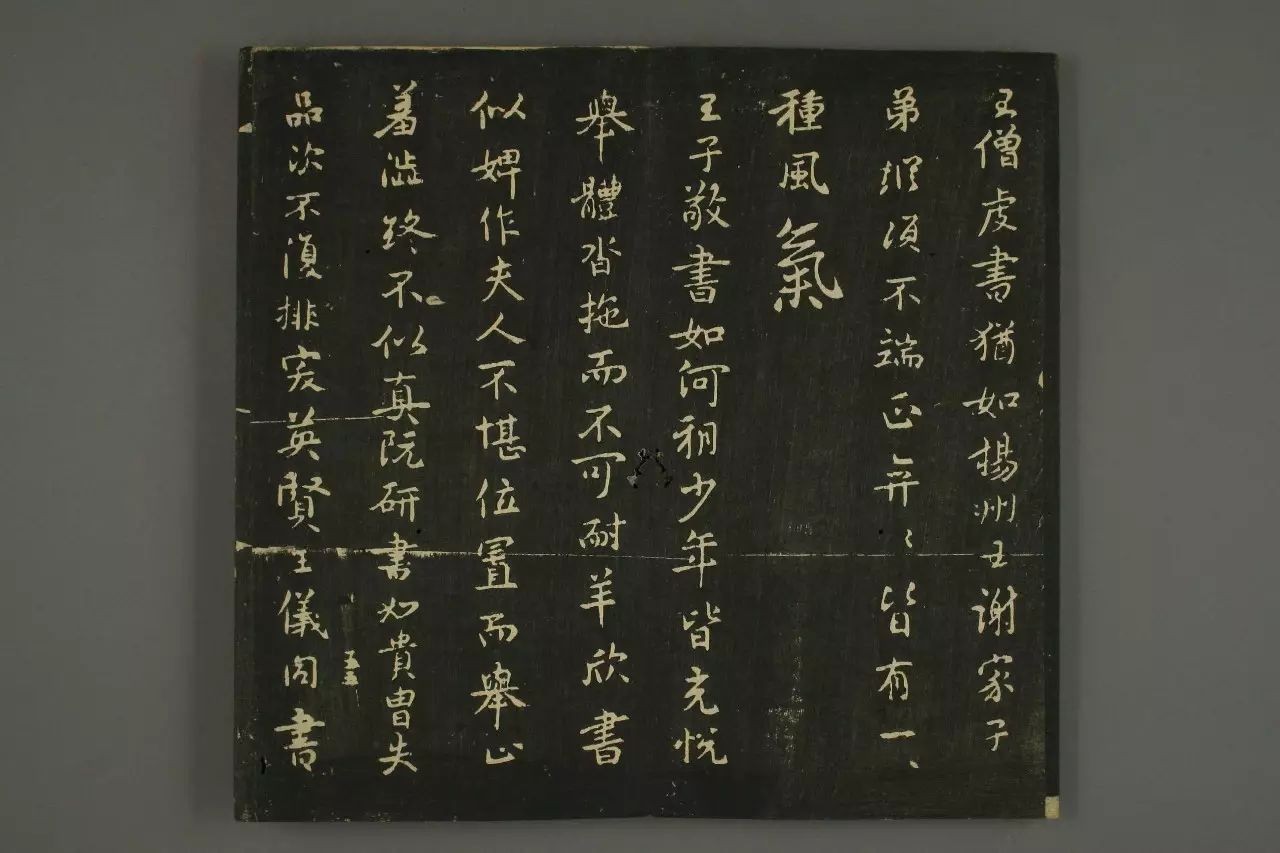 王僧虔書猶如楊州王謝家子
弟縱須不端正弈〻皆有一〻
種風氣
王子敬書如何朔少年皆充悅
舉體沓拖而不可耐羊欣書
似婢作夫人不堪位置而舉止
羞澁終不似真阮研書如貴胄失
品次不復排突英賢王儀同書
五